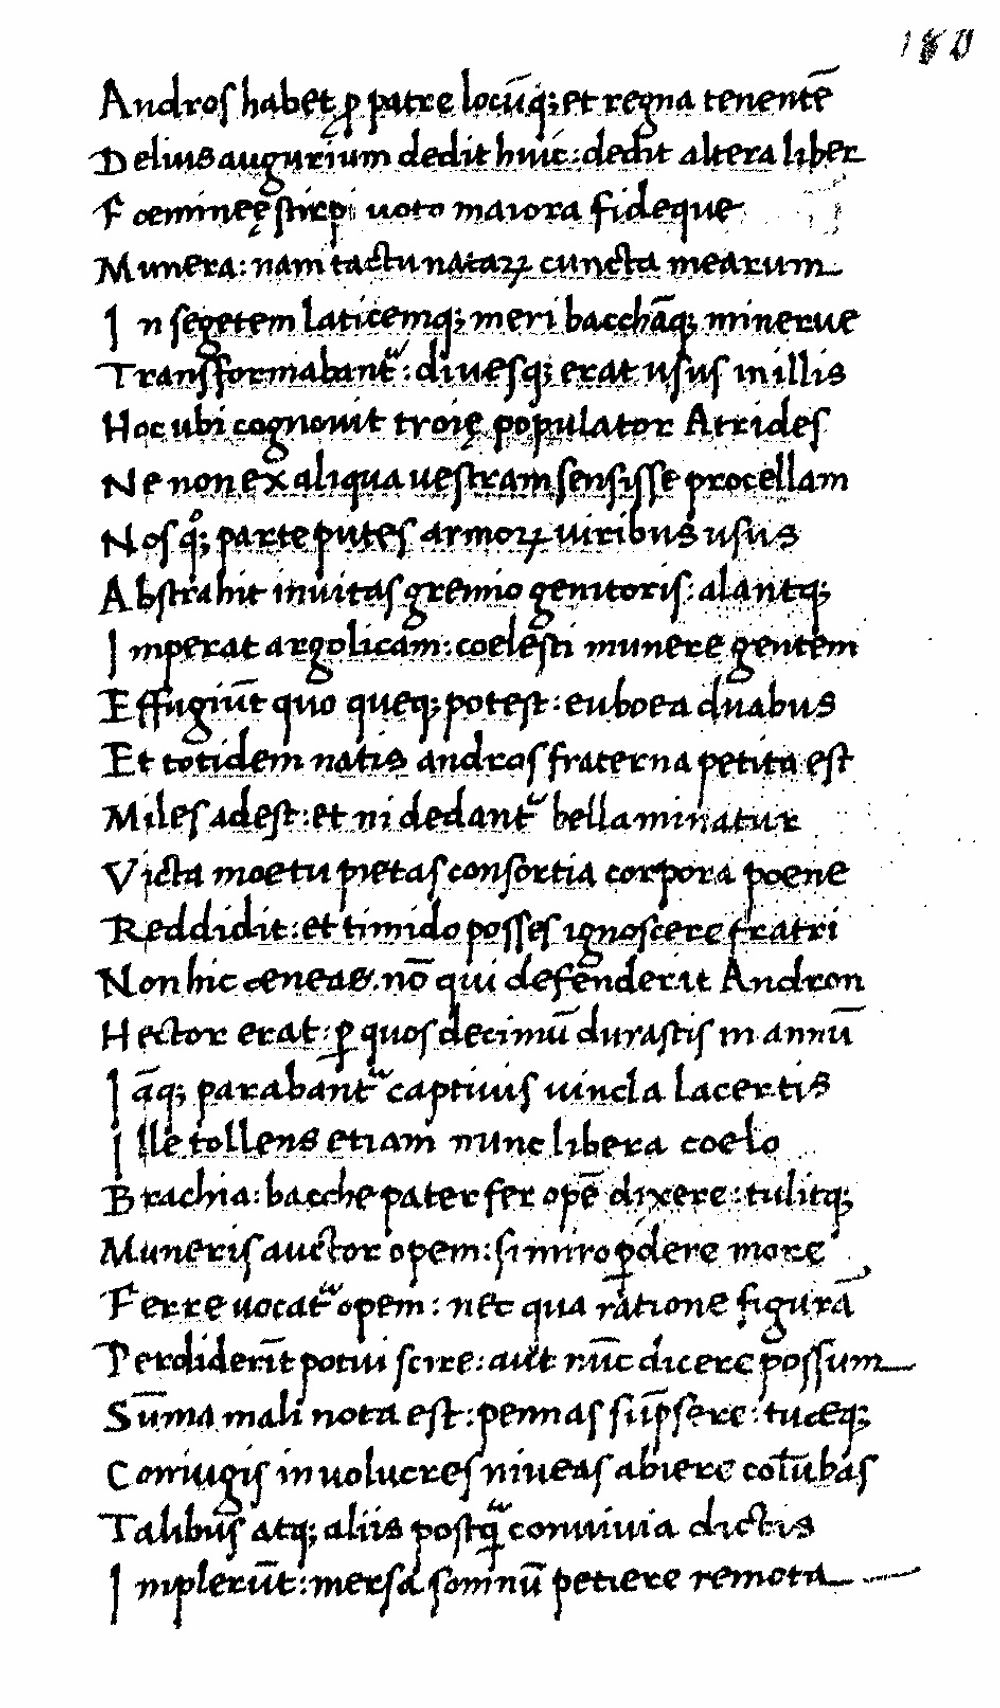 180
Andros habet ꝓ patre locūq; et regna tenentē
Delius augurium dedit huic: dedit altera liber
Foemineę stirpi uoto maiora fideque
Munera: nam tactu nataꝝ cuncta mearum
In segetem laticemq; meri bacchāq; minerue
Transformabantᷣ: diuesq; erat usus in illis
Hoc ubi cognouit troię populator Atrides
Ne non ex aliqua uestram sensisse procellam
Nos qͦ; parte putes armoꝝ uiribus usus
Abstrahit inuitas gremio genitoris: alantq;
Imperat argolicam: coelesti munere gentem
Effugiūt quo queq; potest: euboea duabus
Et totidem natis andros fraterna petita est
Miles adest: et ni dedantᷣ bella minatur
Victa moetu pietas consortia corpora poene
Reddidit: et timido posses ignoscere fratri
Non hic æneas. nō qui defenderit Andron
Hector erat: ꝑ quos decimū durastis in annū
Iāq; parabantᷣ captiuis uincla lacertis
Ille tollens etiam nunc libera coelo
Brachia: bacche pater fer opē dixere: tulitq;
Muneris auctor opem: si miro ꝑdere more
Ferre uocatᷣ opem: nec qua ratione figurā
Perdiderīt potui scire: aut nūc dicere possum
Sūma mali nota est: pennas sūpsere: tuæq;
Coniugis in uolucres niueas abiere colūbas
Talibus atq; aliis postqᷓ conuiuia dictis
Implerūt: mersa somnū petiere remota